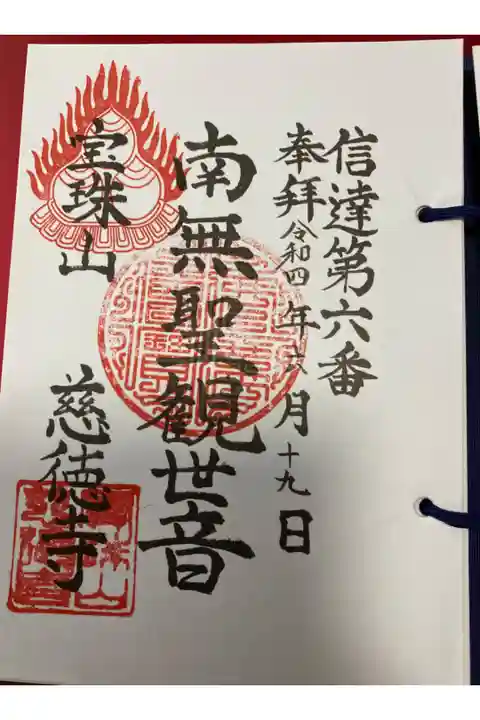 信達第六番
奉拜 令和四年六月十九日
南無聖観世音
宝珠山
慈徳寺